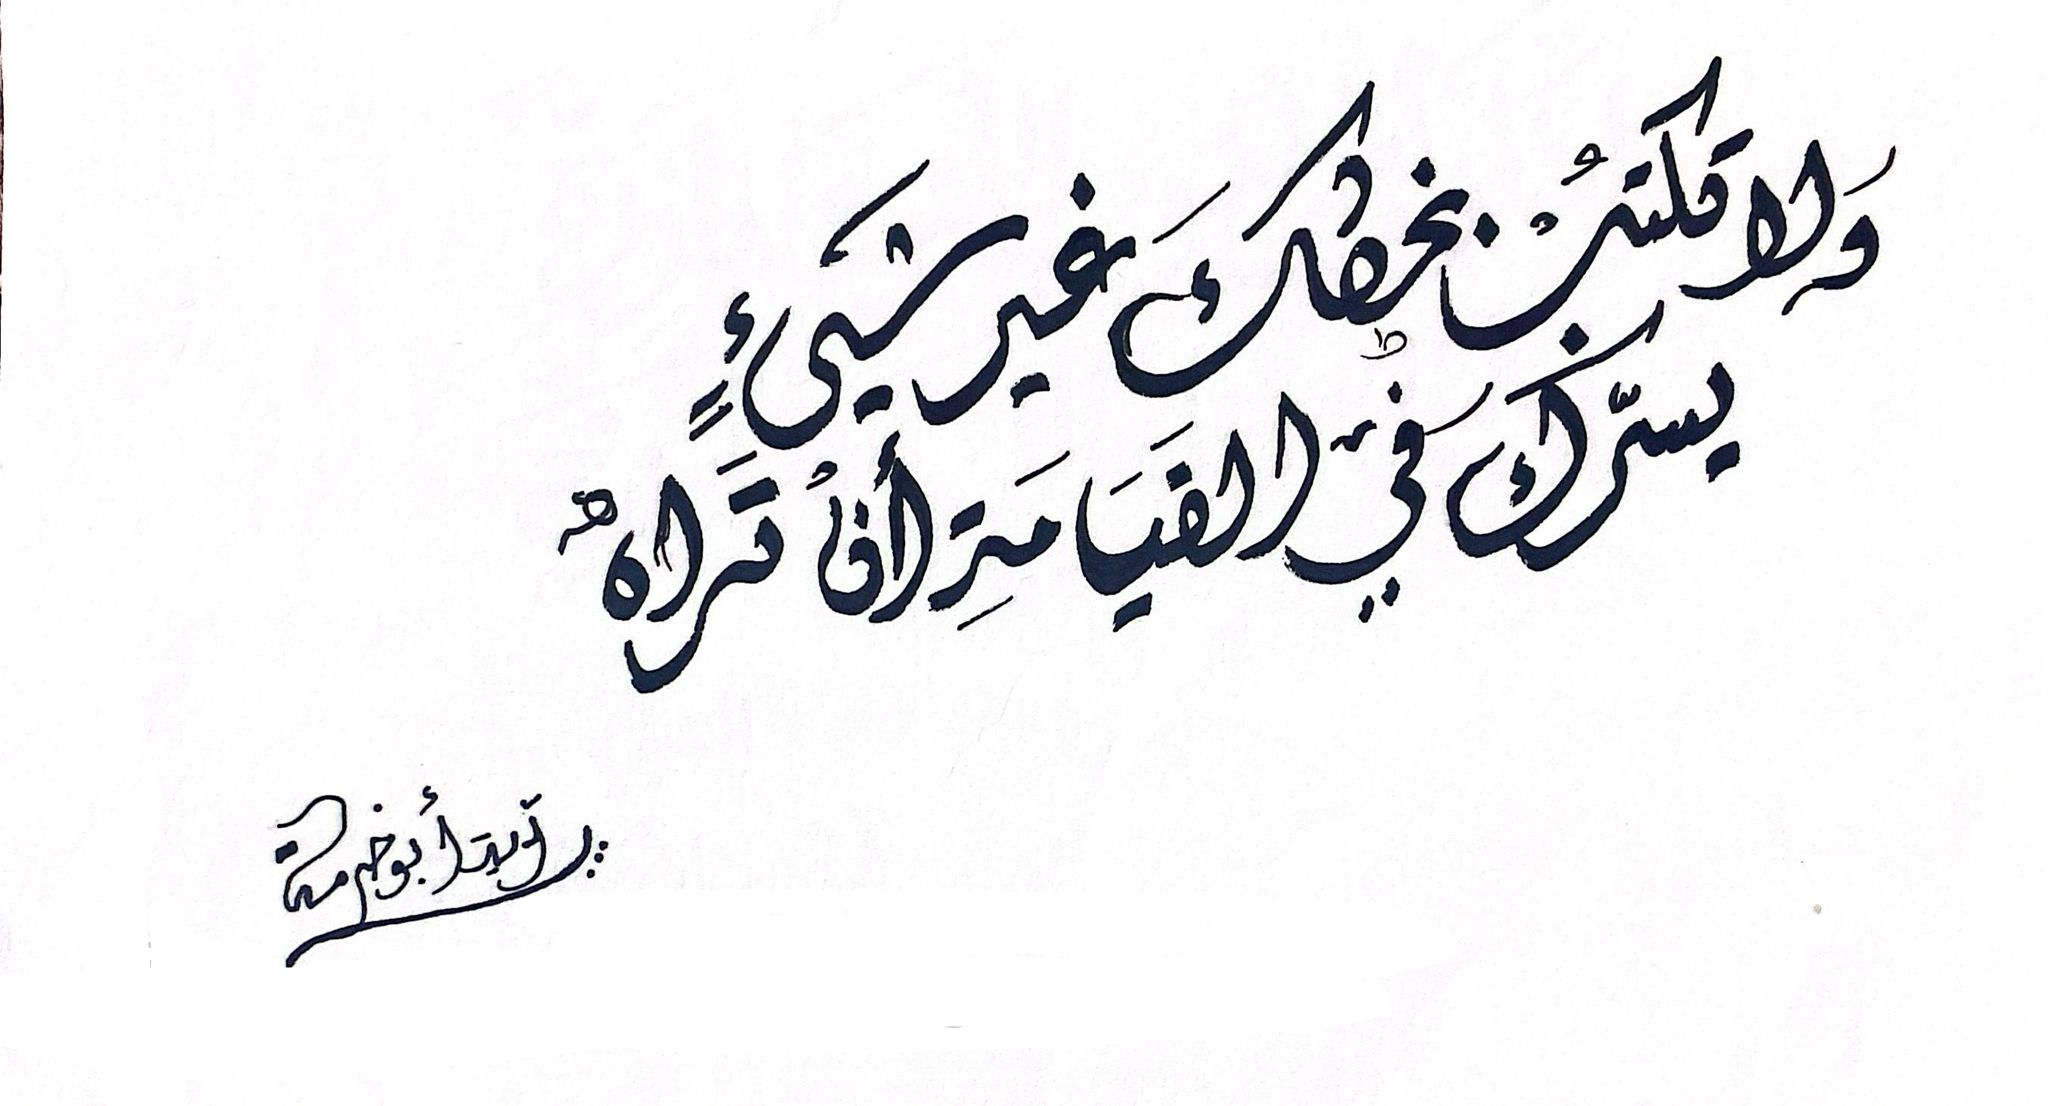 وَلا تكتبْ بخطك غير شيءٍ
يسرّك في القيَامَةِ أنْ تَراهُ
أبو خرمة